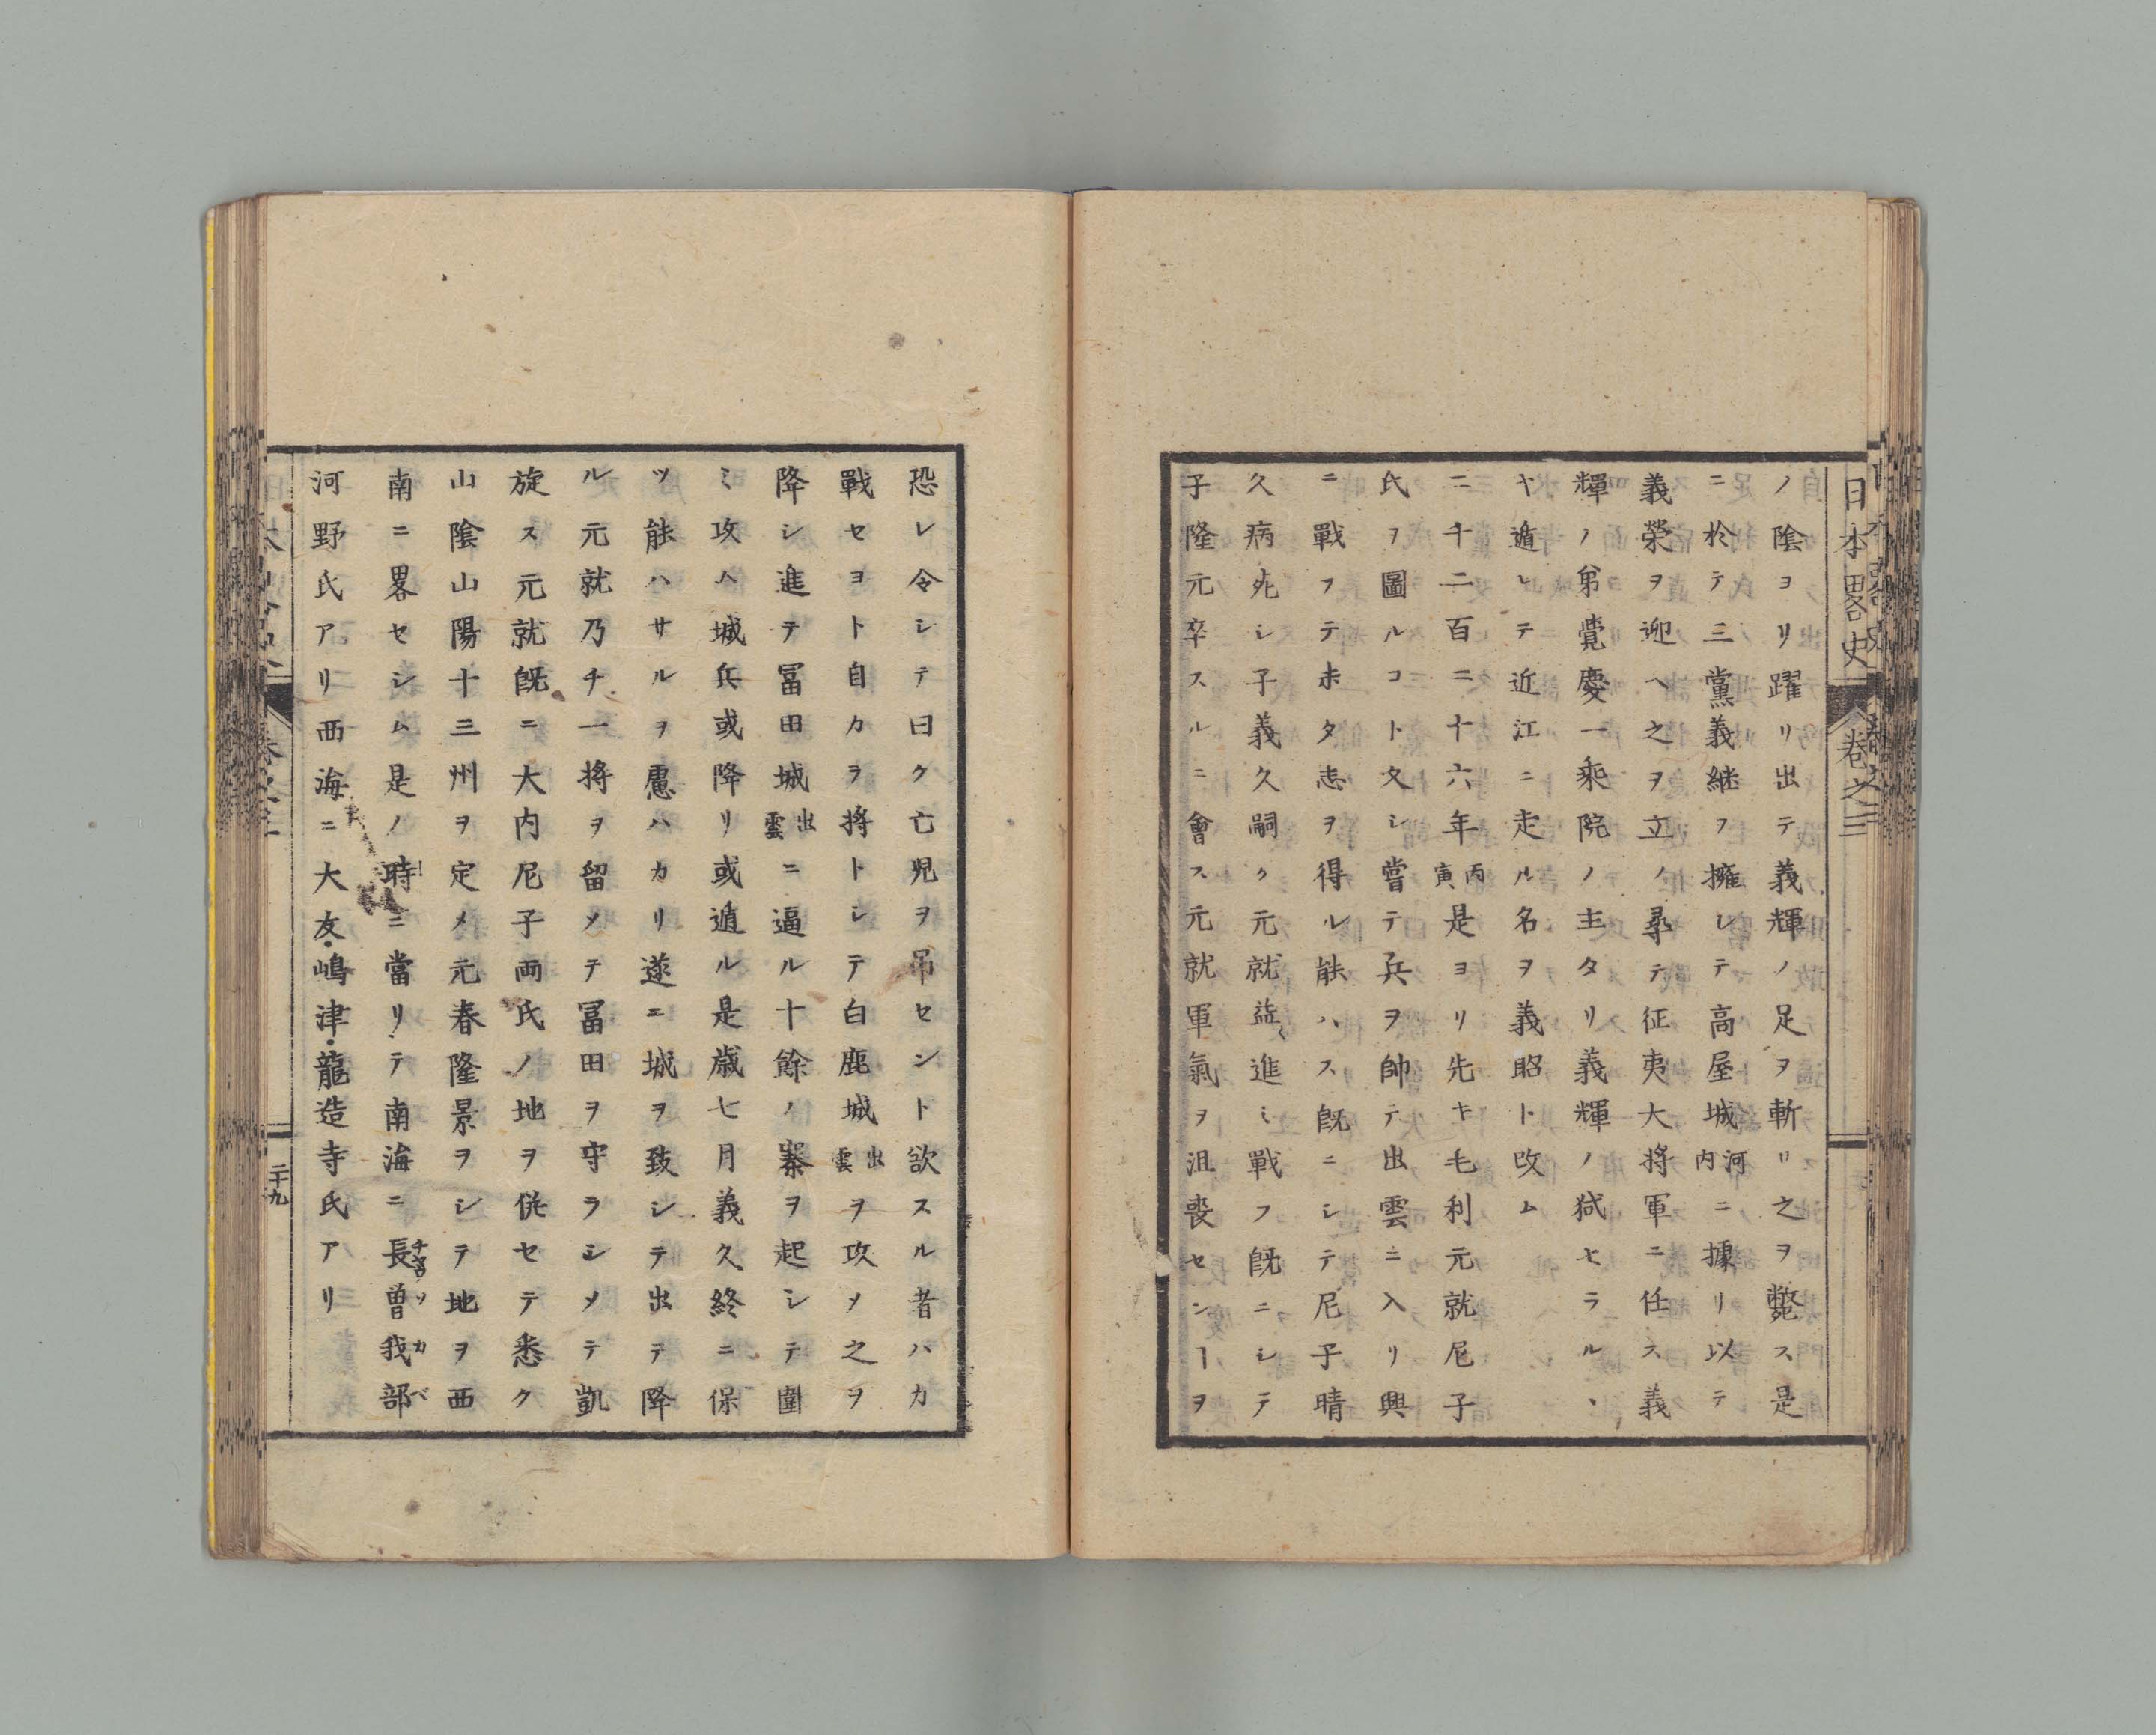 日本畧史 卷之三
ノ陰ヨリ躍リ出テ義輝ノ足ヲ斬リ之ヲ斃ス是
ニ於テ三黨義継ヲ擁シテ高屋城河内ニ據リ以テ
義榮ヲ迎ヘ之ヲ立ノ尋テ征夷大将軍ニ任ス義
輝ノ弟覺慶一乘院ノ主タリ義輝ノ弑セラルヽ
ヤ遁レテ近江ニ走ル名ヲ義昭ト改ム
二千二百二十六年丙寅是ヨリ先キ毛利元就尼子
氏ヲ圖ルコト久シ嘗テ兵ヲ帥テ出雲ニ入リ興
ニ戰フテホタ志ヲ得ル能ハス旣ニシテ尼子晴
久病死シ子義久嗣ク元就益〻進ミ戰フ旣ニシテ
子隆元卒スルニ會ス元就軍氣ヲ沮喪センーヲ
恐レ令シテ曰ク亡児ヲ吊セント欲スル者ハカ
戰セヨト自カラ将トシテ白鹿城出雲ヲ攻メ之ヲ
降シ進テ冨田城出雲ニ逼ル十餘ノ寨ヲ起シテ圍
ミ攻ム城兵或降リ或遁ル是歳七月義久終ニ保
ツ能ハサルヲ慮ハカリ遂ニ城ヲ致シテ出テ降
ル元就乃チ一将ヲ留メテ冨田ヲ守ラシメテ凱
旋ス元就旣ニ大内尼子両氏ノ地ヲ併セテ悉ク
山陰山陽十三州ヲ定メ元春隆景ヲシテ地ヲ西
南ニ畧セシム是ノ時ニ當リテ南海ニ長曽我部
河野氏アリ西海ニ大友・嶋津・龍造寺氏アリ
二十九